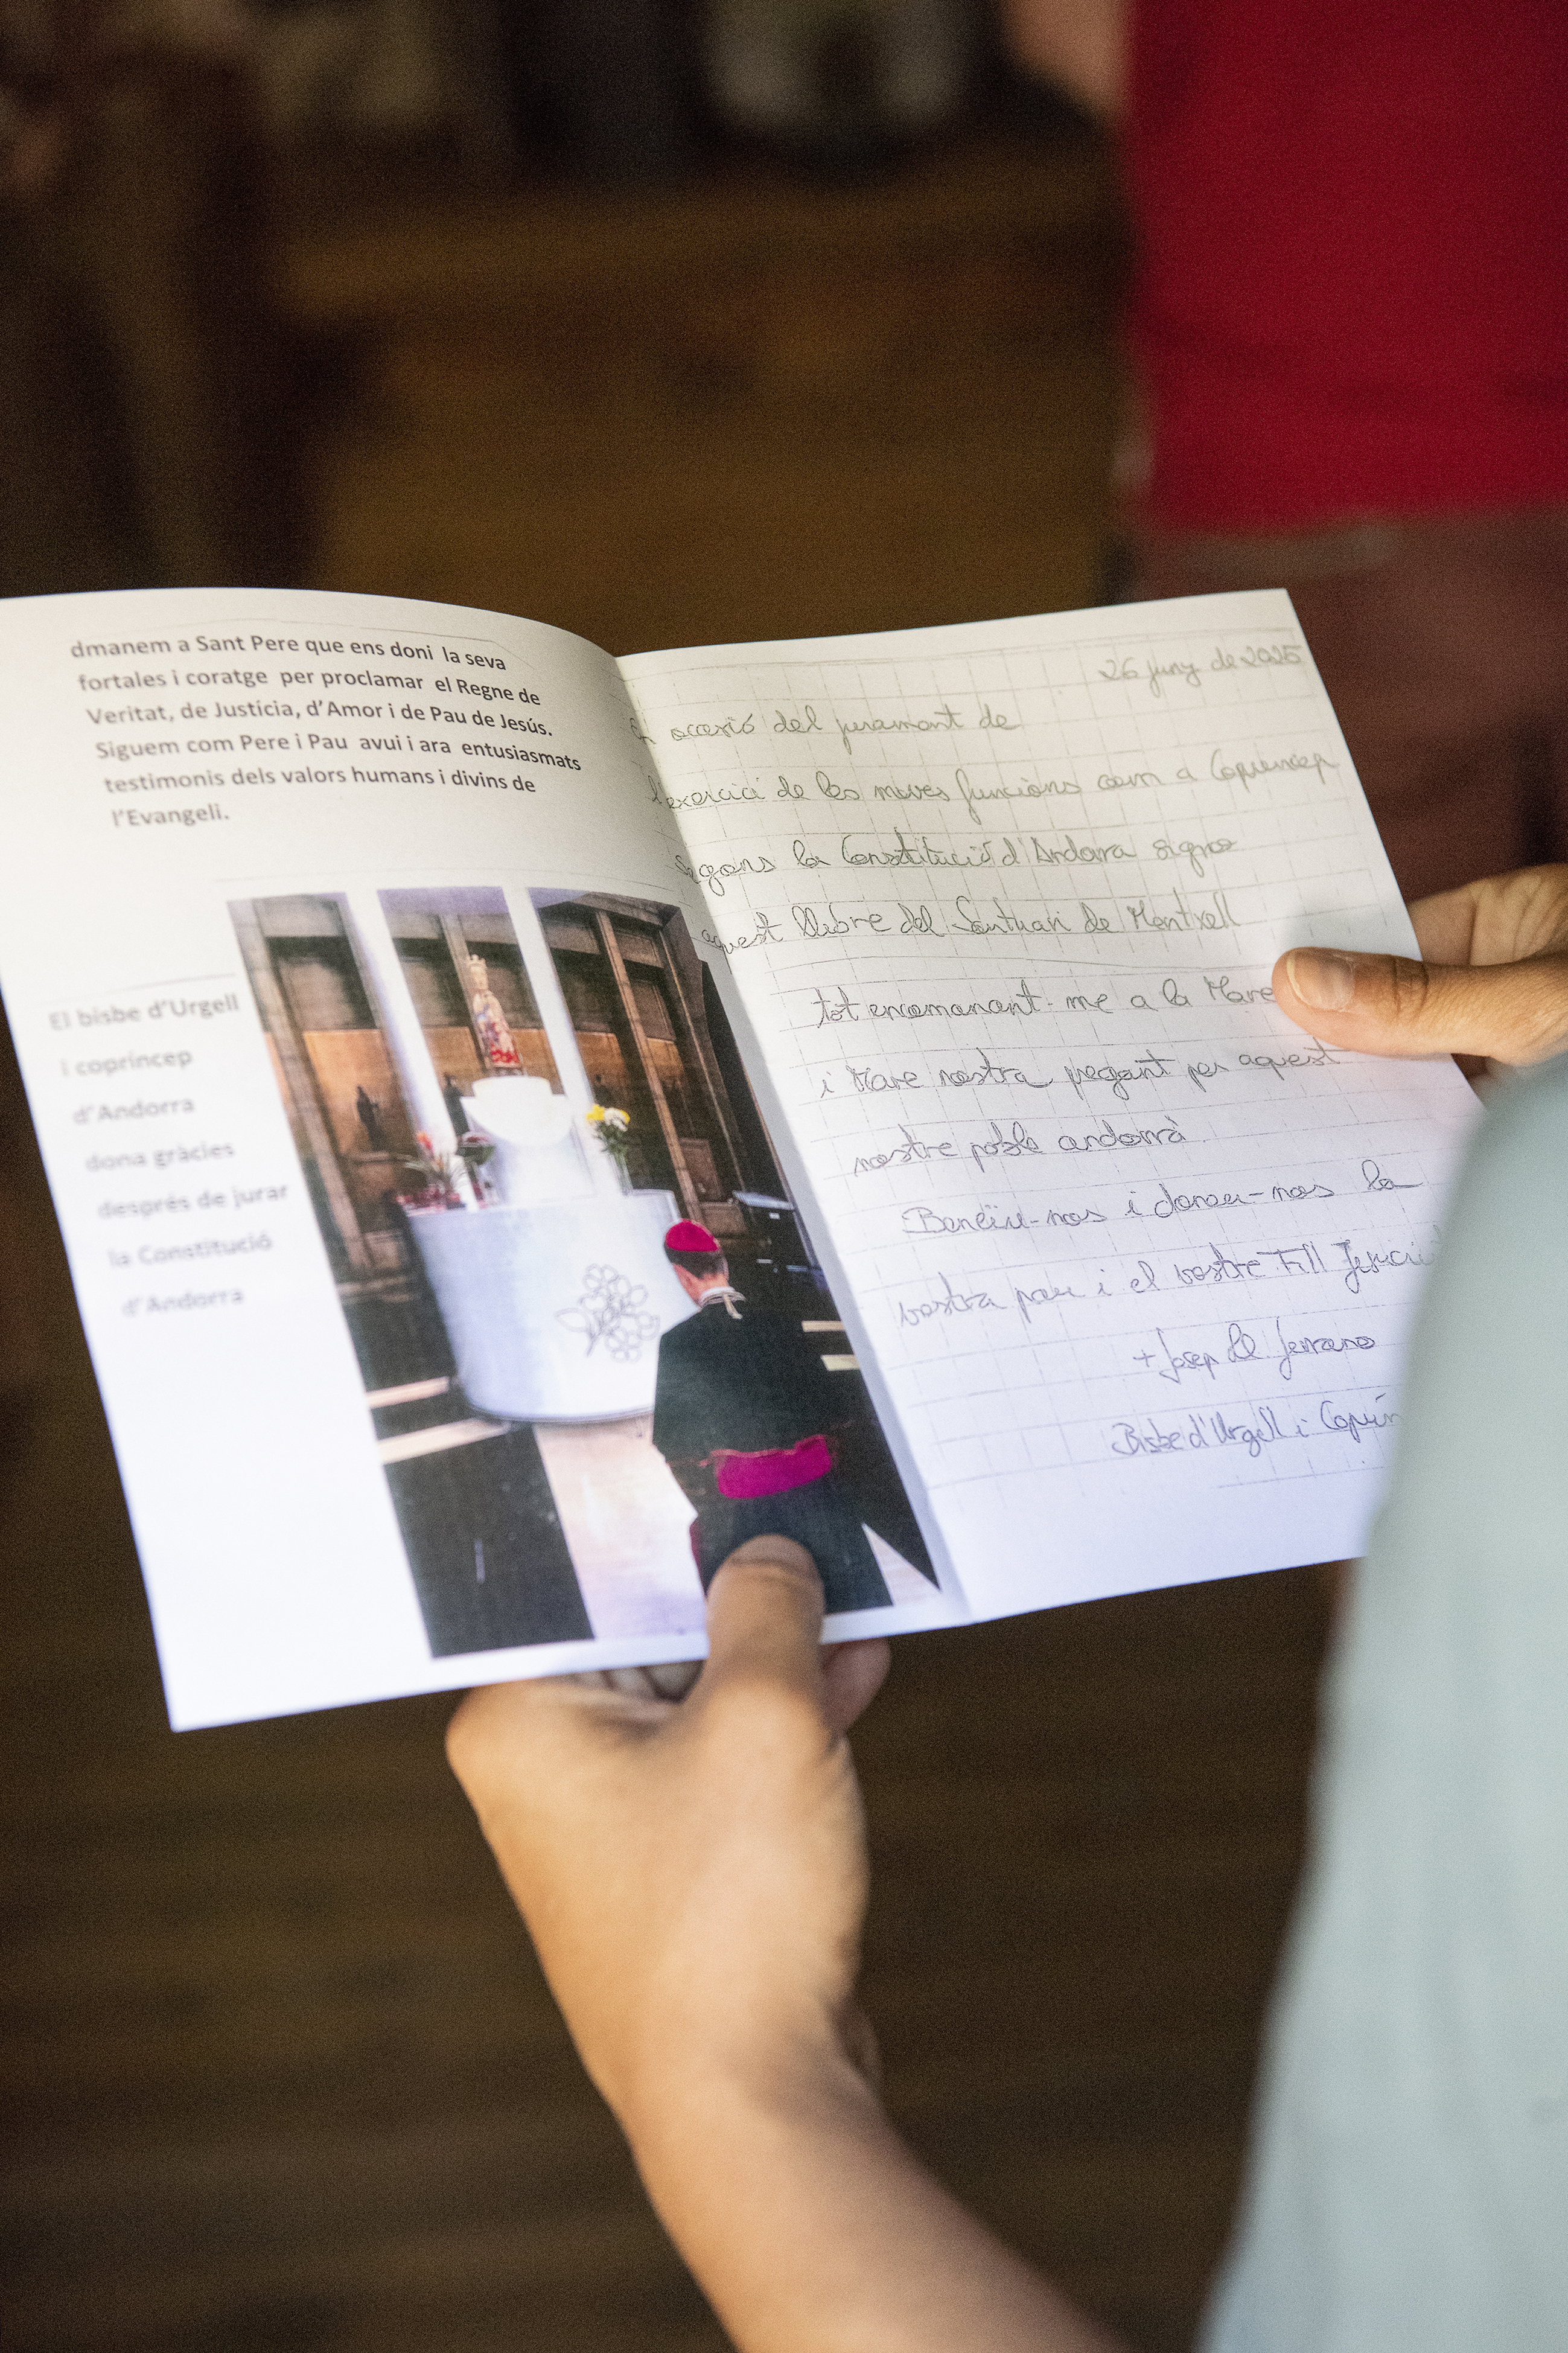 dmanem a Sant Pere que ens doni la seva
fortales i coratge per proclamar el Regne de
Veritat, de Justícia, d'Amor i de Pau de Jesús.
Siguem com Pere i Pau avui i ara entusiasmats
testimonis dels valors humans i divins de
l'Evangeli.
El bisbe d'Urgell
i copríncep
d'Andorra
dona gràcies
després de jurar
la Constitució
d'Andorra
26 juny de 2025
occasió del jurament de
l'exercici de les meves funcions com a Copríncep
segons la Constitució d'Andorra signo
aquest llibre del Santuari de Meritxell
tot encomanant-me a la Mare
i Mare nostra pregant per aquest
nostre poble andorrà.
Beneïu-nos i doneu-nos la
vostra pau i el vostre Fill
+ Josep Ll Serrano
Bisbe d'Urgell i